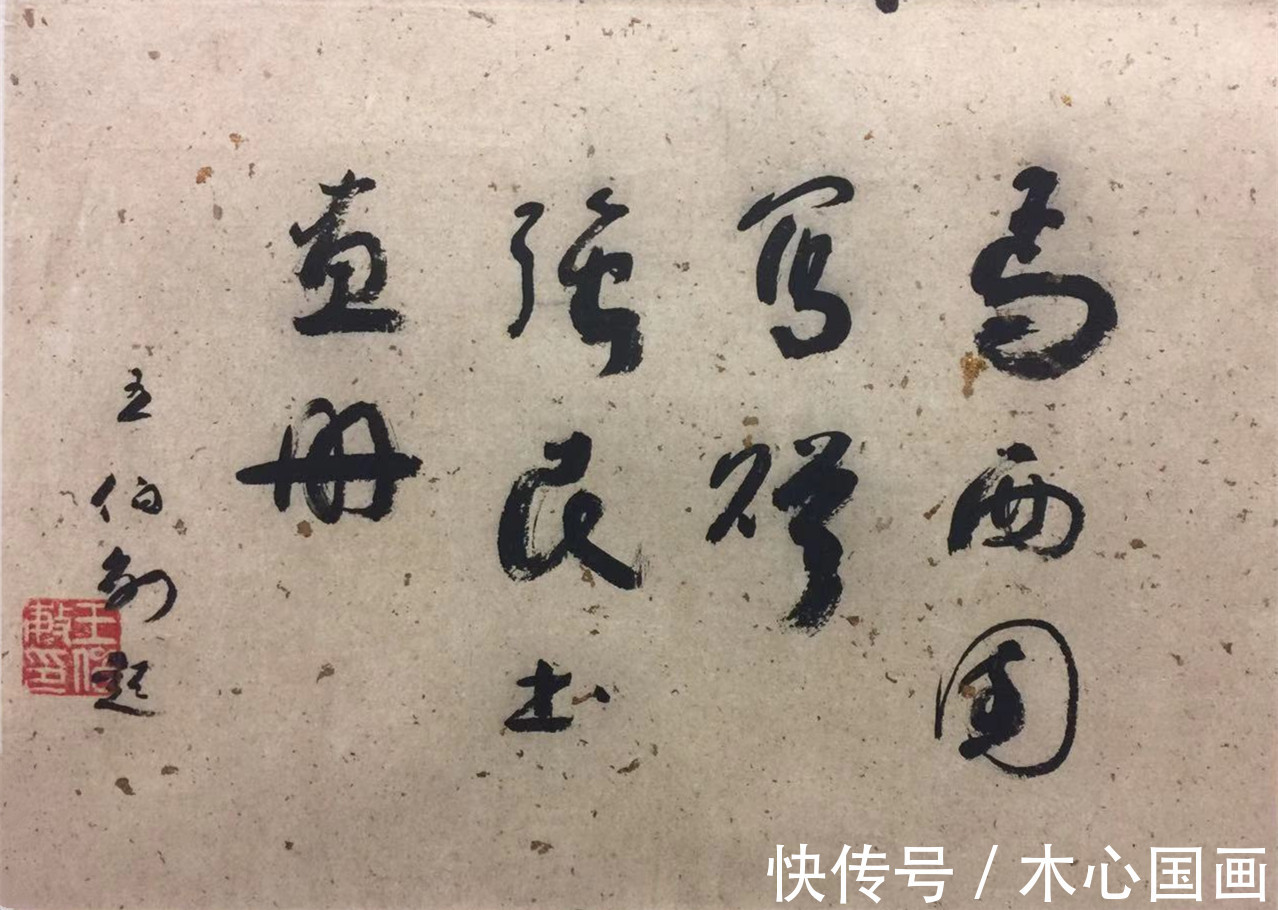 高西園
寫
強民
畫册
王伯敏題
王伯敏印
快传号 / 木心国画